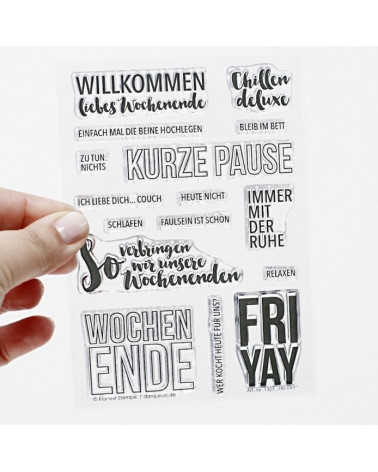 WILLKOMMEN
liebes Wochenende
Chillen
deluxe
EINFACH MAL DIE BEINE HOCHLEGEN
BLEIB IM BETT
ZU TUN:
NICHTS
KURZE PAUSE
ICH LIEBE DICH... COUCH
HEUTE NICHT
IMMER
MIT
DER
RUHE
SCHLAFEN
FAULSEIN IST SCHÖN
So verbringen
wir unsere
Wochenenden
RELAXEN
WOCHEN
ENDE
WER KOCHT HEUTE FÜR UNS?
FRI
YAY
© Klartext Stempel